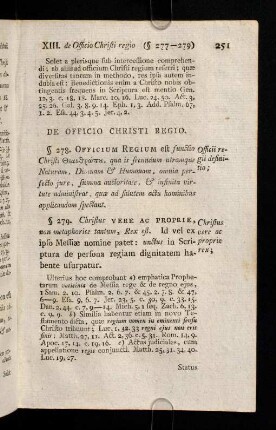 XIII. de Officio Christi regio (§ 277—279) 251
Solet a plerisque sub intercessione comprehendi;
ab aliis ad officium Christi regium referri; quæ
diversitas tantum in methodo, res ipsa autem indubia
est: Benedictionis enim a Christo nobis obtingentis
frequens in Scriptura est mentio Gen.
12, 3. c. 18, 18. Marc. 10, 16. Luc. 24, 50. Act. 3,
25. 26. Gal. 3, 8. 9. 14. Eph. 1, 3. Add. Psalm. 67,
1. 2. Esa. 44, 3. 4. 5. Jer. 4, 2.
DE OFFICIO CHRISTI REGIO.
§ 278. OFFICIUM REGIUM est functio
Christi Θεανθρώπου, qua is secundum utramque
Naturam, Divinam & Humanam, omnia perfecto
jure, summa authoritate, & infinita virtute
administrat, quæ ad salutem actu hominibus
applicandam spectant.
Officii regii
definitio;
§ 279. Christus VERE AC PROPRIE,
non metaphorice tantum, Rex est. Id vel ex
ipso Messiæ nomine patet: unctus in Scriptura
de persona regiam dignitatem habente
usurpatur.
Christus
vere ac
proprie
rex;
Ulterius hoc comprobant a) emphatica Prophetarum
vaticinia de Messia rege & de regno ejus,
1 Sam. 2, 10. Psalm. 2, 6. 7. & 45, 2. 7. 8. & 47,
6—9. Esa. 9, 6. 7. Jer. 23, 5. c. 30, 9. c. 33, 15.
Dan. 2, 44. c. 7, 9—14. Mich. 5, 1 sq. Zach. 2, 13.
c. 9, 9. b) Similia habentur etiam in novo Testamento
dicta, quæ regium nomen in eminenti sensu
Christo tribuunt; Luc. 1, 32. 33 regni ejus non erit
finis; Matth. 27, 11. Act. 2, 36. Rom. 14, 9.
Apoc. 17, 14. c. 19, 16. c) Actus judiciales, cum
appellatione regis conjuncti. Matth. 25, 31. 34. 40.
Luc. 19, 27.
Status